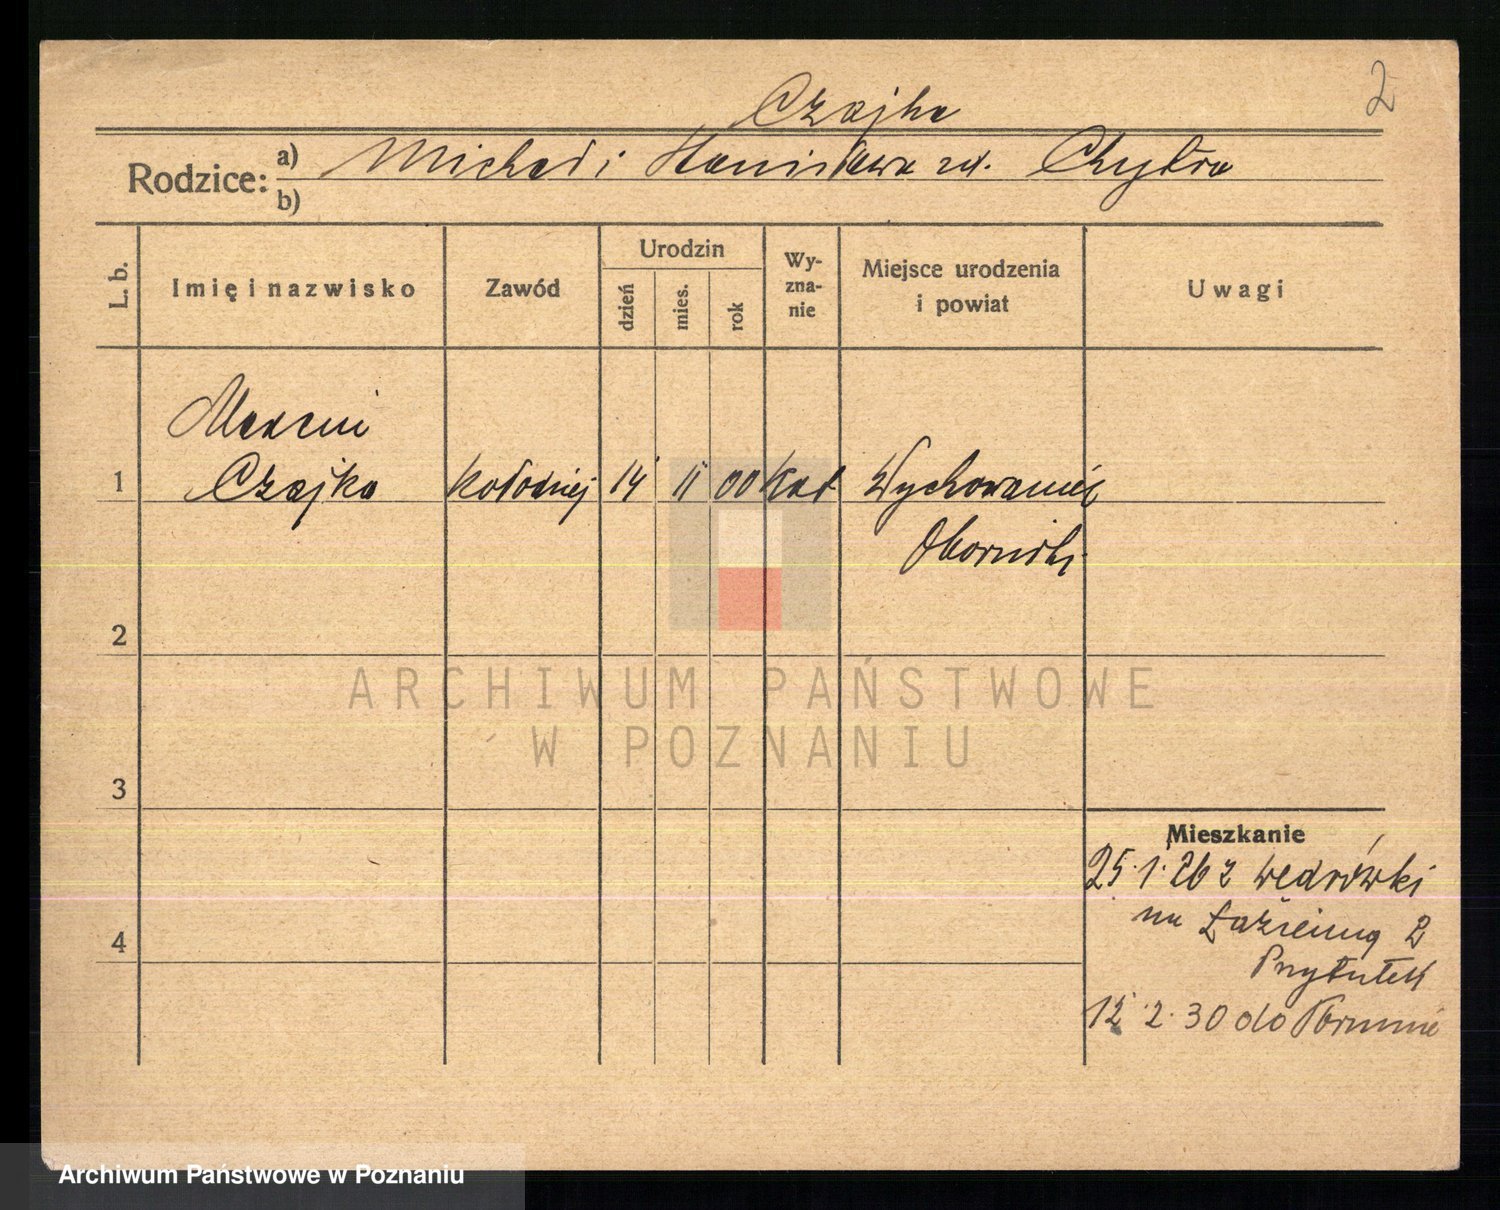 2
Czajka
Rodzice: a) Michał i Stanisława zd. Chytra
b)
L. b.
Imię i nazwisko
Zawód
Urodzin
dzień
mies.
rok
Wy-
zna-
nie
Miejsce urodzenia
i powiat
Uwagi
Marcin
1 Czajka kołodziej 14 11 00 Kat Wychowaniec
Oborniki
2
3
4
ARCHIWUM PAŃSTWOWE
W POZNANIU
Mieszkanie
25.1.26 z wędrówki
na Łazienną 2
Przytułek
12.2.30 do
Archiwum Państwowe w Poznaniu